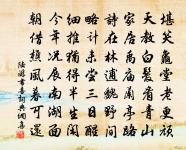 堪笑龜堂老更頑
天教白髮看青山
家居禹廟蘭亭路
詩在林逋魏野間
略計未嘗三日醒
細推獨得半生閑
今年況展南湖面
朝借樵風暮可還
陸游書喜詞典網書